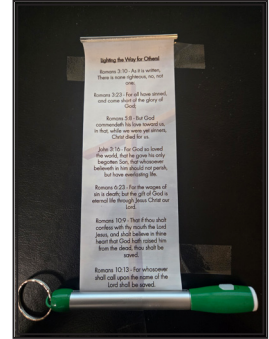 Lighting the Way for Others!
Romans 3:10 - As it is written,
There is none righteous, no, not
one.
Romans 3:23 - For all have sinned,
and come short of the glory of
God;
Romans 5:8 - But God
commendeth his love toward us,
in that, while we were yet sinners,
Christ died for us.
John 3:16 - For God so loved
the world, that he gave his only
begotten Son, that whosoever
believeth in him should not perish,
but have everlasting life.
Romans 6:23 - For the wages of
sin is death; but the gift of God is
eternal life through Jesus Christ our
Lord.
Romans 10:9 - That if thou shalt
confess with thy mouth the Lord
Jesus, and shalt believe in thine
heart that God hath raised him
from the dead, thou shalt be
saved.
Romans 10:13 - For whosoever
shall call upon the name of the
Lord shall be saved.